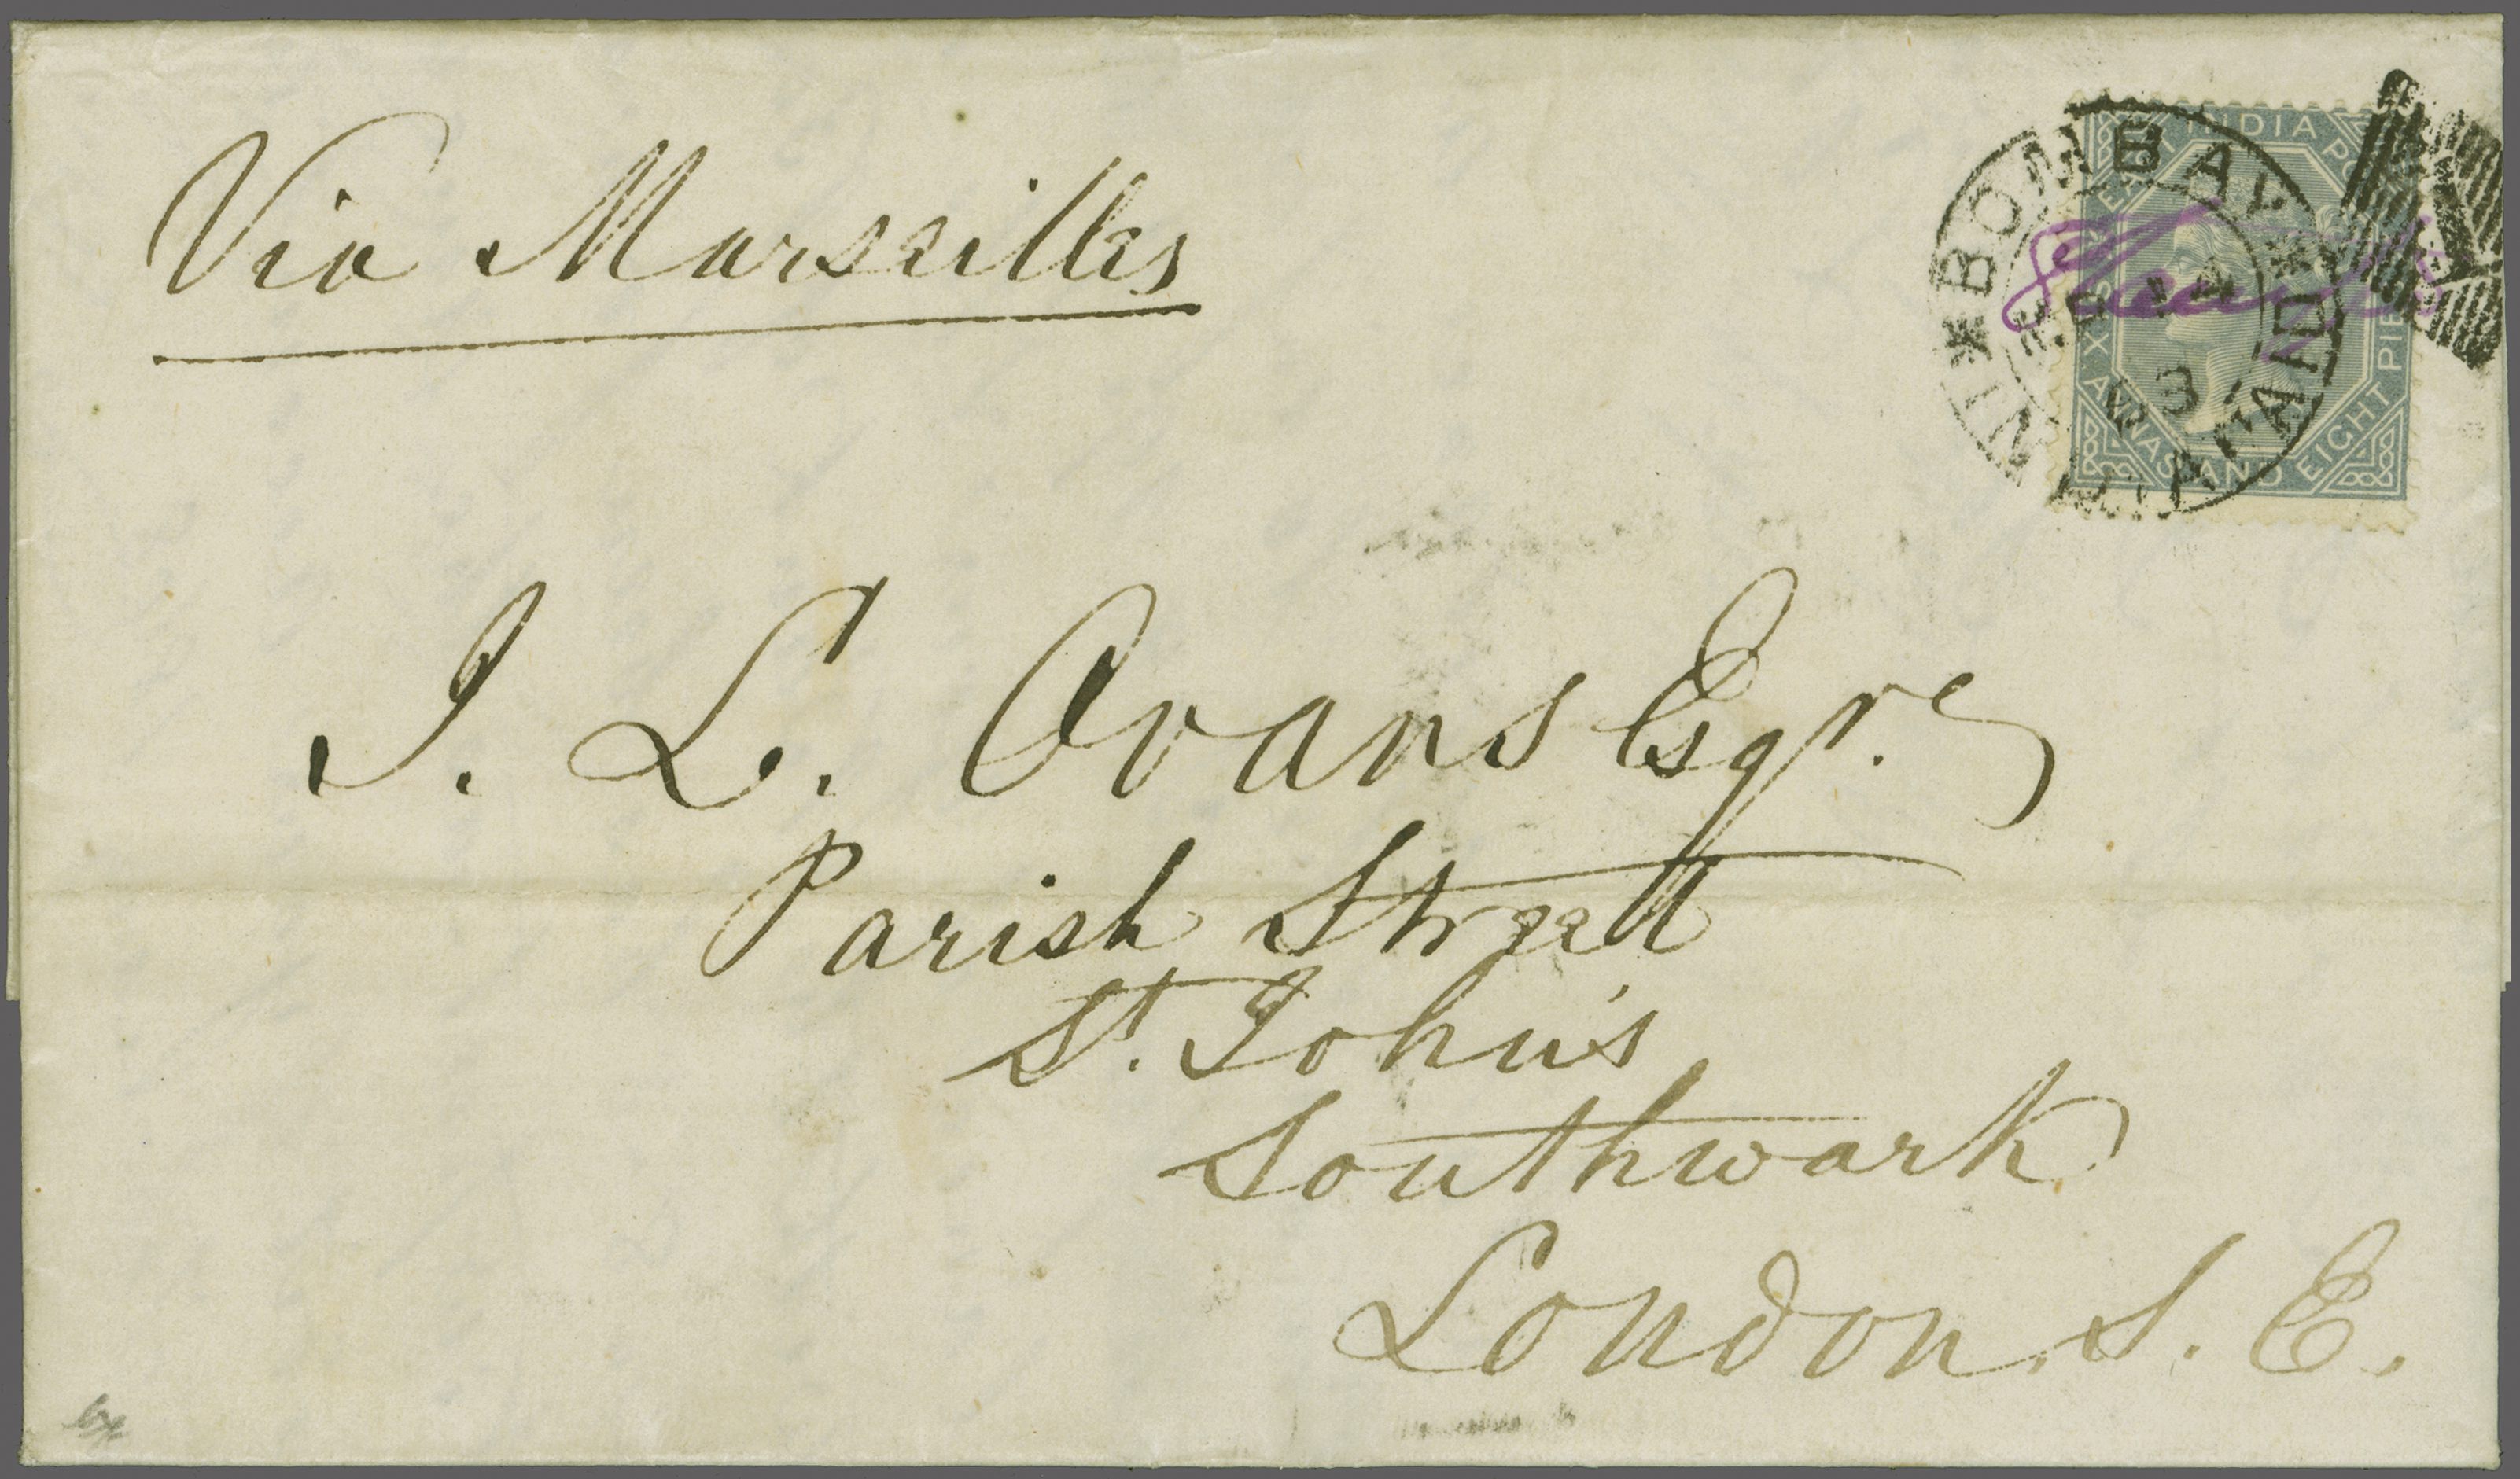 Via Marseilles
EAST INDIA POSTAGE
SIX ANNAS AND EIGHT PIES
BOMBAY
J. L. Ovans Esqre
Parish Street
St. John's
Southwark
London. S. E.